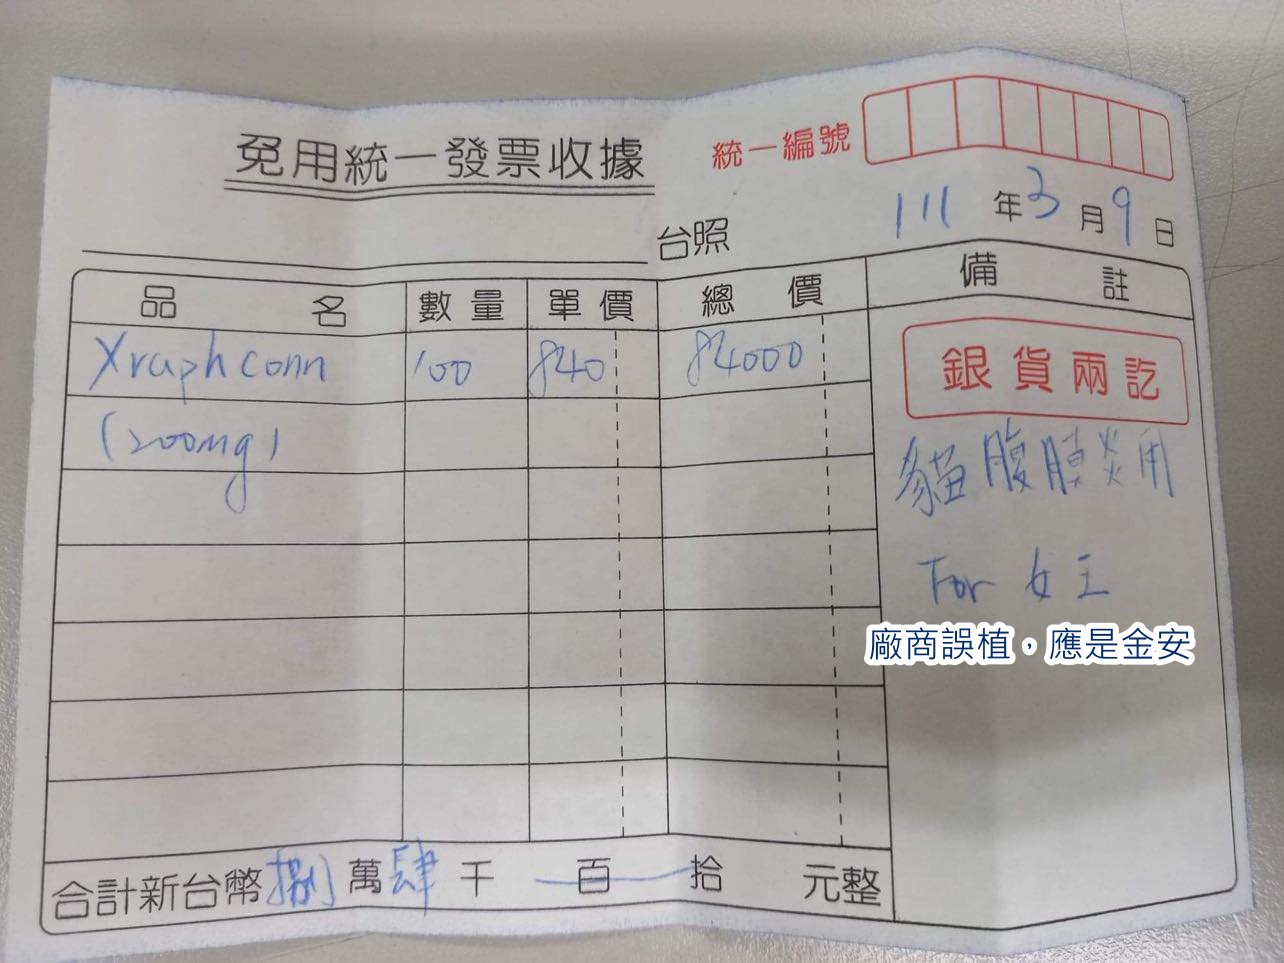 免用統一發票收據
統一編號
111年3月9日
台照
品名 數量 單價 總價 備註
Xraphconn 100 840 84000
銀貨兩訖
(200mg)
貓腹膜炎用
For 女王
廠商誤植，應是金安
合計新台幣捌萬肆千百拾元整